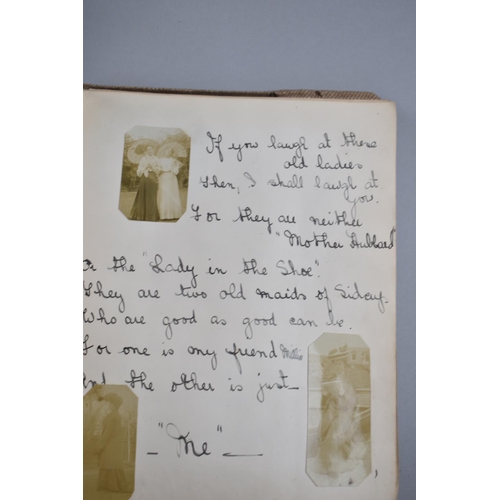 If you laugh at these
old ladies
Then, I shall laugh at
you.
For they are neither
"Mother Hubbard"
Or the "Lady in the Shoe".
They are two old maids of
Who are good as good can be.
For one is my friend Millie
And the other is just
"Me"